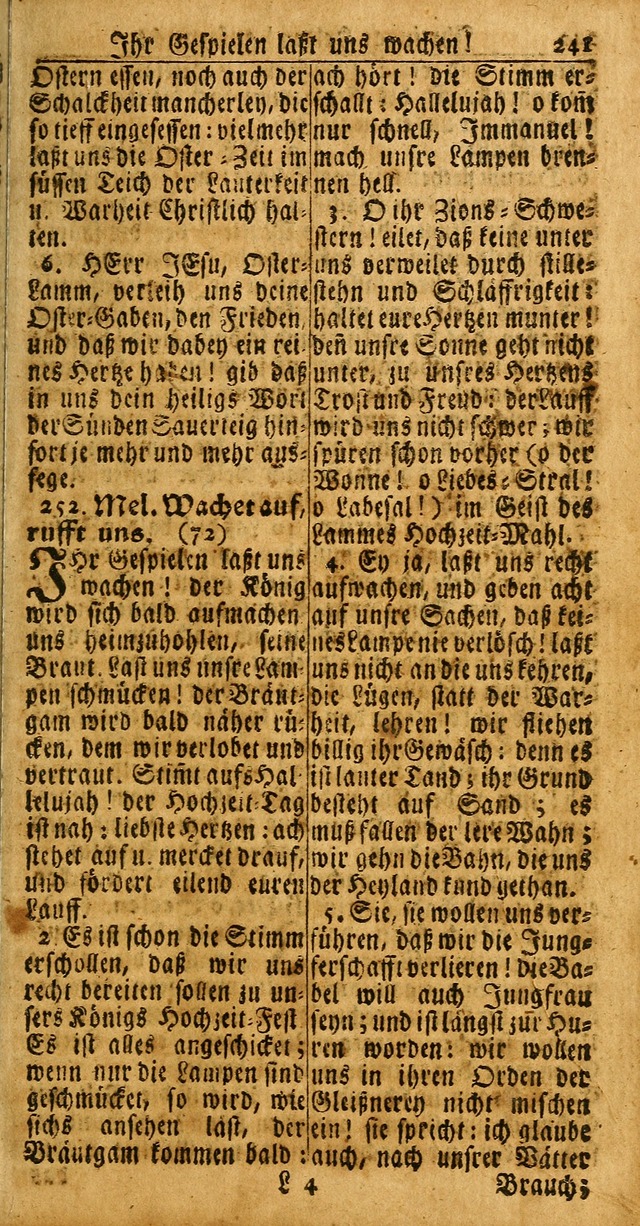 Ihr Gespielen laßt uns wachen! 241
Ostern essen, noch auch der
Schalckheit mancherley, die
so tieff eingesessen: vielmehr
laßt uns die Oster-Zeit im
süssen Teich der Lauterkeit
u. Warheit Christlich hal-
ten.
6. HErr JEsu, Oster-
Lamm, verleih uns deine
Oster-Gaben, den Frieden,
und daß wir dabey ein rei-
nes Hertze haben! gib daß
in uns dein heiligs Wort
der Sünden Sauerteig hin-
fort je mehr und mehr aus-
fege.
252. Mel. Wachet auf,
rufft uns. (72)
IHr Gespielen laßt uns
wachen! der König
wird sich bald aufmachen
uns heimzuhohlen, seine
Braut. Last uns unsre Lam-
pen schmücken! der Bräut-
gam wird bald näher rü-
cken, dem wir verlobet und
vertraut. Stim̄t aufs Hal-
lelujah! der Hochzeit-Tag
ist nah: liebste Hertzen: ach
stehet auf u. mercket drauf,
und fördert eilend euren
Lauff.
2. Es ist schon die Stimm
erschollen, daß wir uns
recht bereiten sollen zu un-
sers Königs Hochzeit-Fest
Es ist alles angeschicket;
wenn nur die Lampen sind
geschmücket, so wird, wie
sichs ansehen läst, der
Bräutgam kommen bald:
ach hört! die Stimm er-
schallt: Hallelujah! o kom̄
nur schnell, Immanuel!
mach unsre Lampen bren-
nen hell.
3. O ihr Zions-Schwe-
stern! eilet, daß keine unter
uns verweilet durch stille-
stehn und Schläffrigkeit:
haltet eure Hertzen munter!
den̄ unsre Sonne geht nicht
unter, zu unsres Hertzens
Trost und Freud: der Lauff
wird uns nicht schwer; wir
spüren schon vorher (o der
Wonne! o Liebes-Stral!
o Labesal!) im Geist des
Lammes Hochzeit-Mahl.
4. Ey ja, laßt uns recht
aufwachen, und geben acht
auf unsre Sachen, daß kei-
nes Lampe nie verlösch! laßt
uns nicht an die uns kehren,
die Lügen, statt der War-
heit, lehren! wir fliehen
billig ihr Gewäsch: denn es
ist lauter Tand; ihr Grund
besteht auf Sand; es
muß fallen der lere Wahn;
wir gehn die Bahn, die uns
der Heyland kund gethan.
5. Sie, sie wollen uns ver-
führen, daß wir die Jung-
ferschafft verlieren! die Ba-
bel will auch Jungfrau
seyn; und ist längst zur Hu-
ren worden: wir wollen
uns in ihren Orden der
Gleißnerey nicht mischen
ein! sie spricht: ich glaube
auch, nach unsrer Vätter
L 4 Brauch;